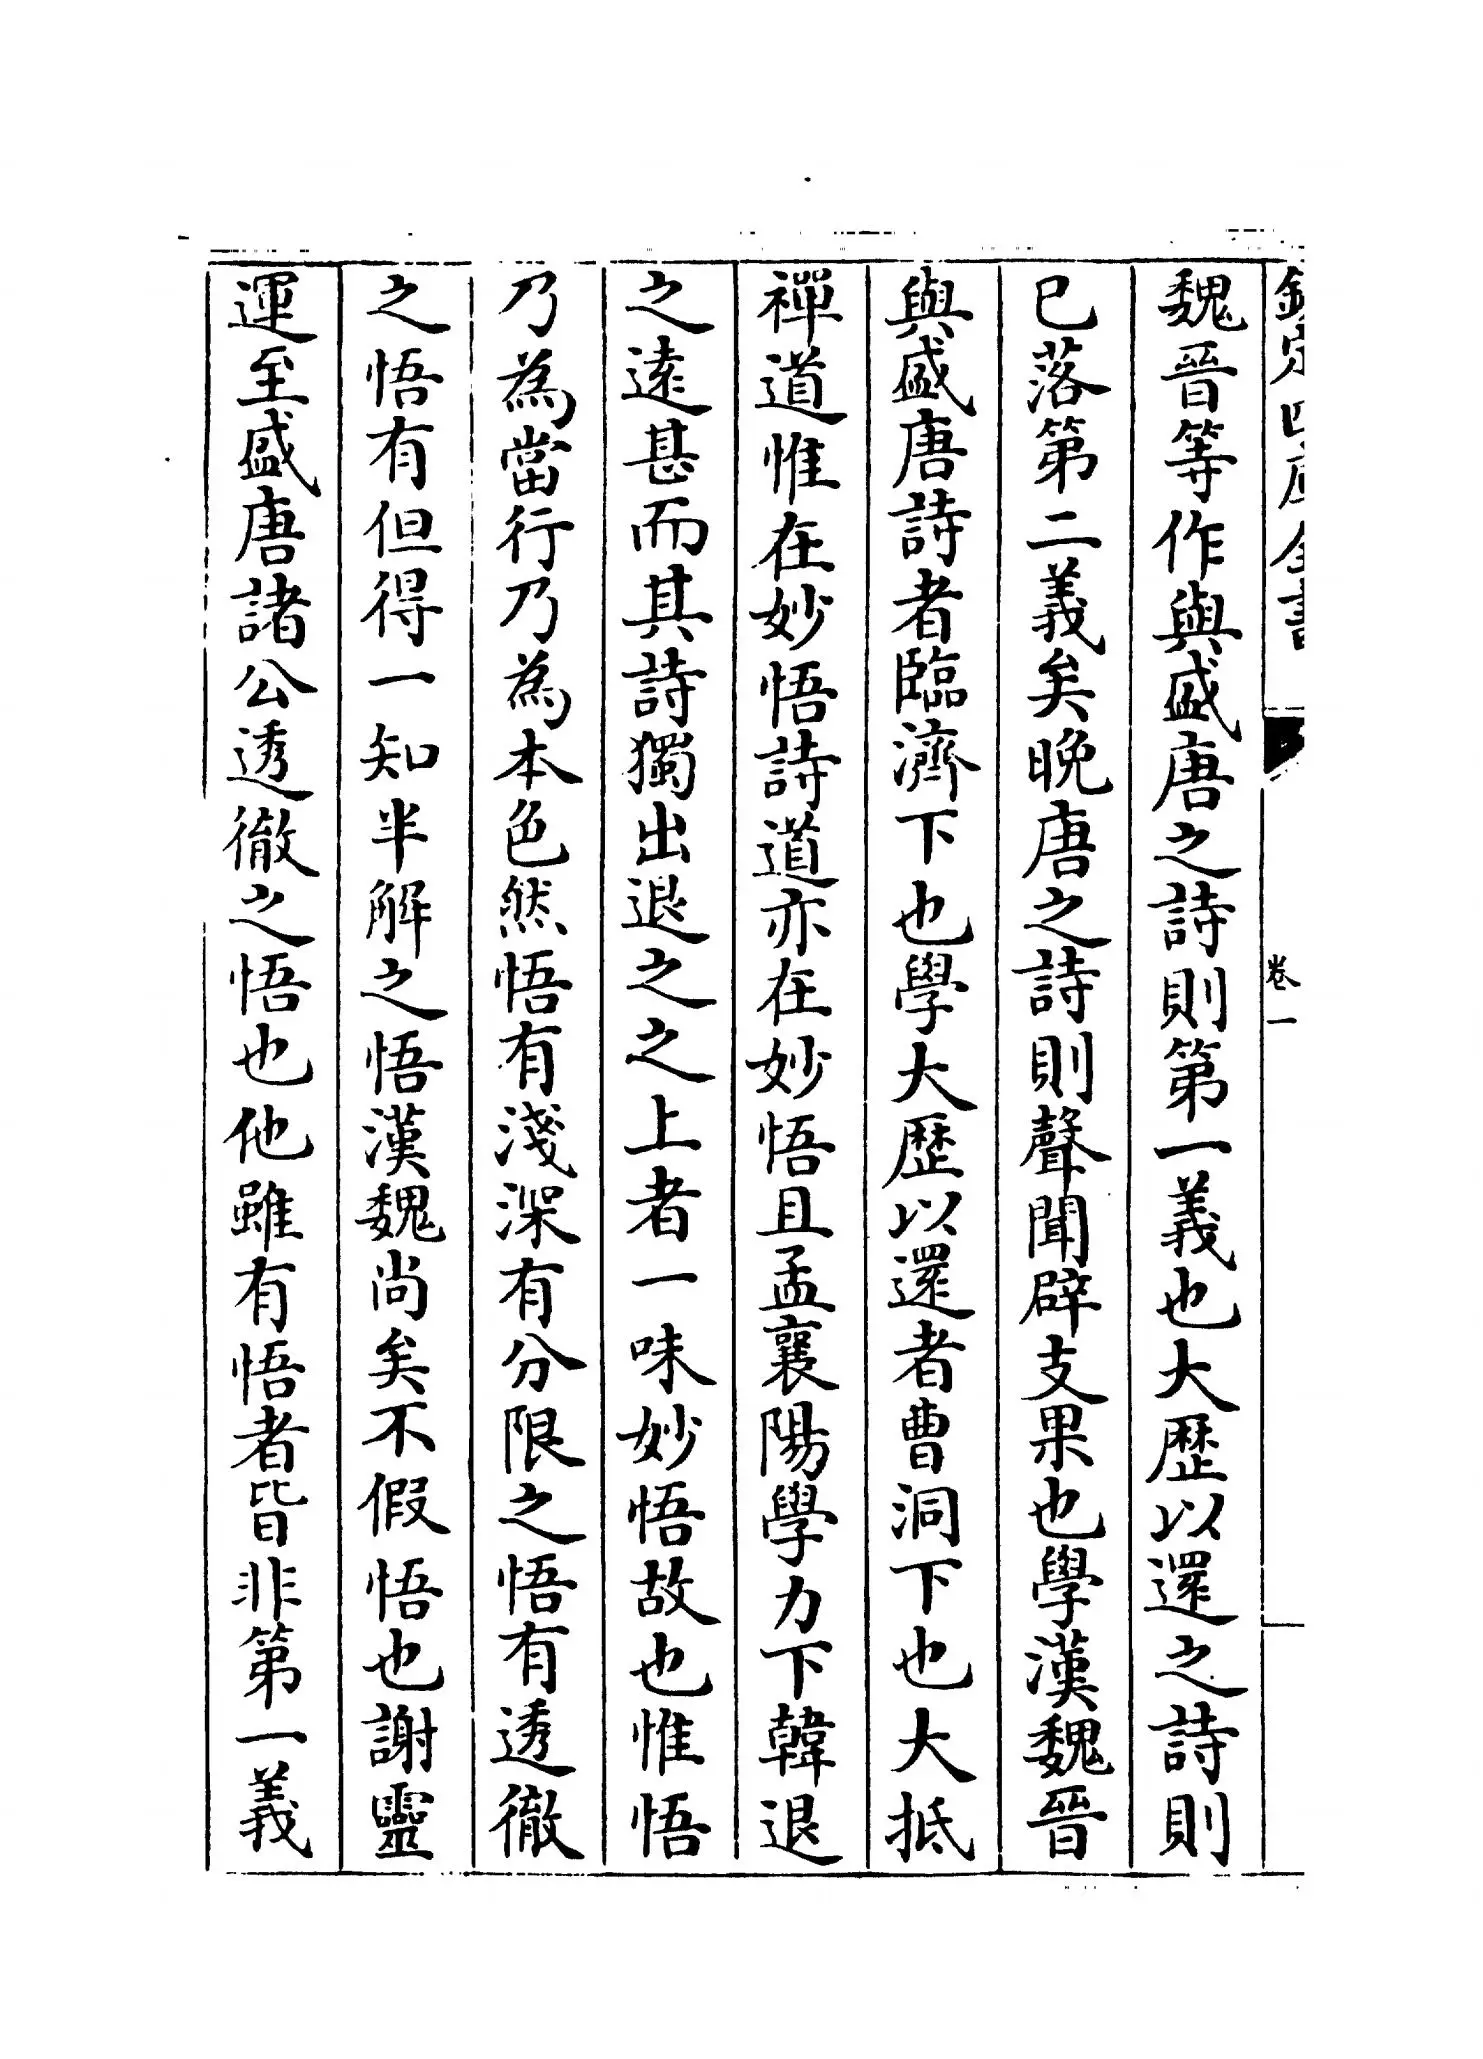 欽定四庫全書
卷一
魏晉等作與盛唐之詩則第一義也大歷以還之詩則
已落第二義矣晚唐之詩則聲聞辟支果也學漢魏晉
與盛唐詩者臨濟下也學大歷以還者曹洞下也大抵
禪道惟在妙悟詩道亦在妙悟且孟襄陽學力下韓退
之遠甚而其詩獨出退之之上者一味妙悟故也惟悟
乃為當行乃為本色然悟有淺深有分限之悟有透徹
之悟有但得一知半解之悟漢魏尚矣不假悟也謝靈
運至盛唐諸公透徹之悟也他雖有悟者皆非第一義